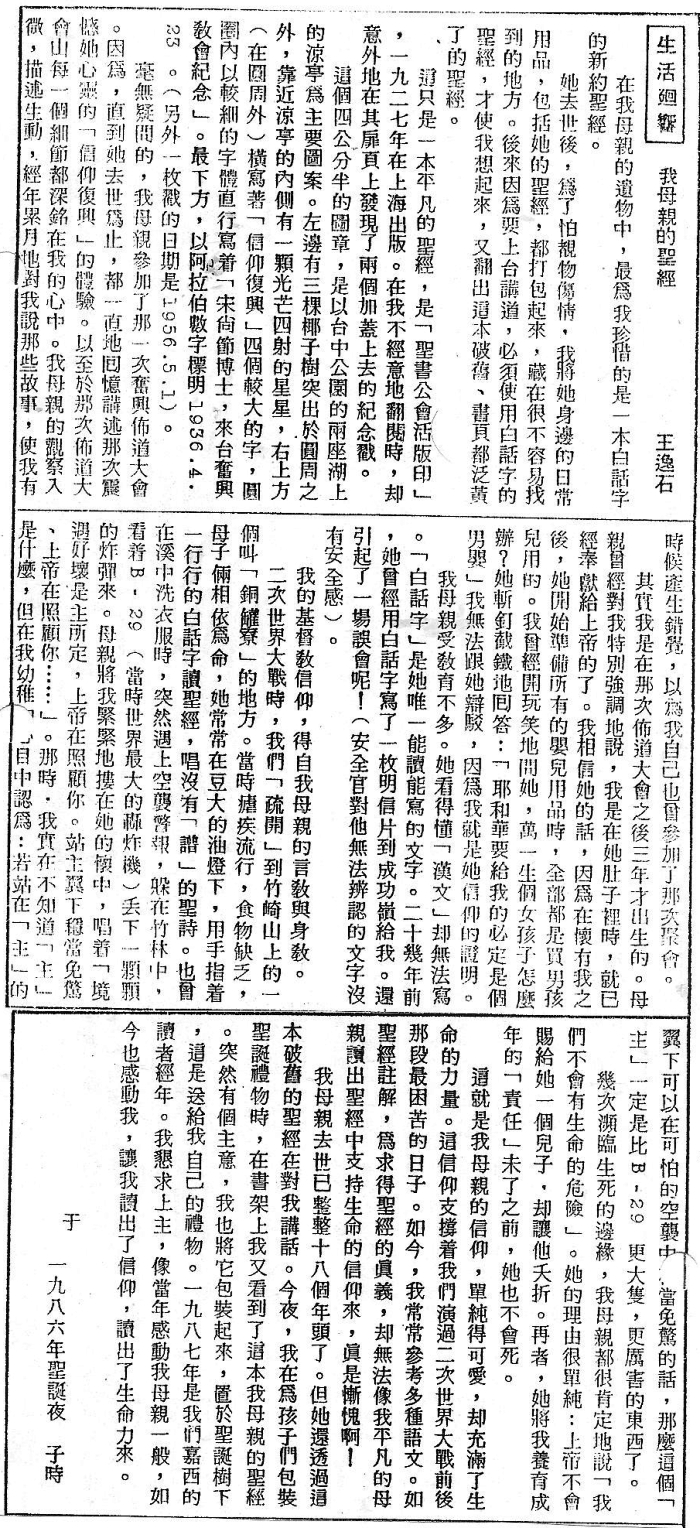 生活廻響
我母親的聖經
王逸石
在我母親的遺物中，最爲我珍惜的是一本白話字
的新約聖經。
她去世後，爲了怕覩物傷情，我將她身邊的日常
用品，包括她的聖經，都打包起來，藏在很不容易找
到的地方。後來因爲要上台講道，必須使用白話字的
聖經，才使我想起來，又翻出這本破舊、書頁都泛黃
了的聖經。
這只是一本平凡的聖經，是「聖書公會活版印」
，一九二七年在上海出版。在我不經意地翻閱時，却
意外地在其扉頁上發現了兩個加蓋上去的紀念戳。
這個四公分半的圖章，是以台中公園的兩座湖上
的涼亭爲主要圖案。左邊有三棵椰子樹突出於圓周之
外，靠近涼亭的內側有一顆光芒四射的星星，右上方
（在圓周外）橫寫著「信仰復興」四個較大的字，圓
圈內以較細的字體直行寫着「宋尙節博士，來台奮興
敎會紀念」。最下方，以阿拉伯數字標明1936.4.
23 。（另外一枚戳的日期是1936.5.1）。
毫無疑問的，我母親參加了那一次奮興佈道大會
。因爲，直到她去世爲止，都一直地囘憶講述那次震
憾她心靈的「信仰復興」的體驗。以至於那次佈道大
會山每一個細節都深銘在我的心中。我母親的觀察入
微，描述生動，經年累月地對我說那些故事，使我有
時候產生錯覺，以為我自己也曾參加了那次聚會。
其實我是在那次佈道大會之後三年才出生的。母
親曾經對我特別強調地說，我是在她肚子裡時，就已
經奉獻給上帝的了。我相信她的話，因爲在懷有我之
後，她開始準備所有的嬰兒用品時，全部都是買男孩
兒用的。我曾經開玩笑地問她，萬一生個女孩子怎麼
辦？她斬釘截鐵地回答：「耶和華要給我的必定是個
男嬰」我無法跟她辯駁，因爲我就是她信仰的證明。
我母親受敎育不多。她看得懂「漢文」却無法寫
。「白話字」是她唯一能讀能寫的文字。二十幾年前
，她曾經用白話字寫了一枚明信片到成功嶺給我。還
引起了一場誤會呢！（安全官對他無法辨認的文字沒
有安全感）。
我的基督敎信仰，得自我母親的言敎與身敎。
二次世界大戰時，我們「疏開」到竹崎山上的一
個叫「銅鑼寮」的地方。當時瘧疾流行，食物缺乏，
母子倆相依爲命，她常常在豆大的油燈下，用手指着
一行行的白話字讀聖經，唱沒有「譜」的聖詩。也曾
在溪中洗衣服時，突然遇上空襲警報，躲在竹林中，
看着B-29 （當時世界最大的轟炸機）丟下一顆顆
的炸彈來。母親將我緊緊地摟在她的懷中，唱着「境
遇好壞是主所定，上帝在照顧你。站主翼下穩當免驚
、上帝在照顧你……」。那時，我實在不知道「主」
是什麼，但在我幼稚 目中認爲：若站在「主」的
翼下可以在可怕的空襲中 當免驚的話，那麼這個「
主」一定是比B-29 更大隻，更厲害的東西了。
幾次瀕臨生死的邊緣，我母親都很肯定地說「我
們不會有生命的危險」。她的理由很單純：上帝不會
賜給她一個兒子，却讓他夭折。再者，她將我養育成
年的「責任」未了之前，她也不會死。
這就是我母親的信仰，單純得可愛，却充滿了生
命的力量。這信仰支撐着我們演過二次世界大戰前後
那段最困苦的日子。如今，我常常參考多種語文。如
聖經註解，爲求得聖經的眞義，却無法像我平凡的母
親讀出聖經中支持生命的信仰來，眞是慚愧啊！
我母親去世已整整十八個年頭了。但她還透過這
本破舊的聖經在對我講話。今夜，我在爲孩子們包裝
聖誕禮物時，在書架上我又看到了這本我母親的聖經
。突然有個主意，我也將它包裝起來，置於聖誕樹下
，這是送給我自己的禮物。一九八七年是我們嘉西的
讀者經年。我懇求上主，像當年感動我母親一般，如
今也感動我，讓我讀出了信仰，讀出了生命力來。
于 一九八六年聖誕夜 子時